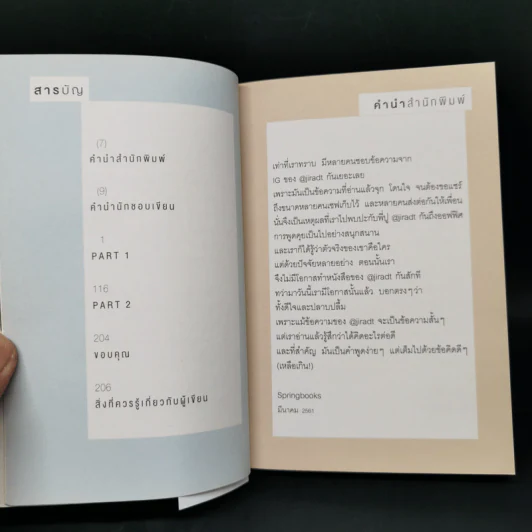 สารบัญ
(7)
คำนำสำนักพิมพ์
(9)
คำนำนักชอบเขียน
1
PART 1
116
PART 2
204
ขอบคุณ
206
สิ่งที่ควรรู้เกี่ยวกับผู้เขียน
คำนำสำนักพิมพ์
เท่าที่เราทราบ มีหลายคนชอบข้อความจาก
IG ของ @jiradt กันเยอะเลย
เพราะมันเป็นข้อความที่อ่านแล้วจุก โดนใจ จนต้องขอแชร์
ถึงขนาดหลายคนเซฟเก็บไว้ และหลายคนส่งต่อกันให้เพื่อน
นั่นจึงเป็นเหตุผลที่เราไปพบปะกับพี่ปู @jiradt กันถึงออฟฟิศ
การพูดคุยเป็นไปอย่างสนุกสนาน
และเราก็ได้รู้ว่าตัวจริงของเขาคือใคร
แต่ด้วยปัจจัยหลายอย่าง ตอนนั้นเรา
จึงไม่มีโอกาสทำหนังสือของ @jiradt กันสักที
ทว่ามาวันนี้เรามีโอกาสนั้นแล้ว บอกตรงๆ ว่า
ทั้งดีใจและปลาบปลื้ม
เพราะแม้ข้อความของ @jiradt จะเป็นข้อความสั้นๆ
แต่เราอ่านแล้วรู้สึกว่าได้คิดอะไรต่อดี
และที่สำคัญ มันเป็นคำพูดง่ายๆ แต่เต็มไปด้วยข้อคิดดีๆ
(เหลือเกิน!)
Springbooks
มีนาคม 2561